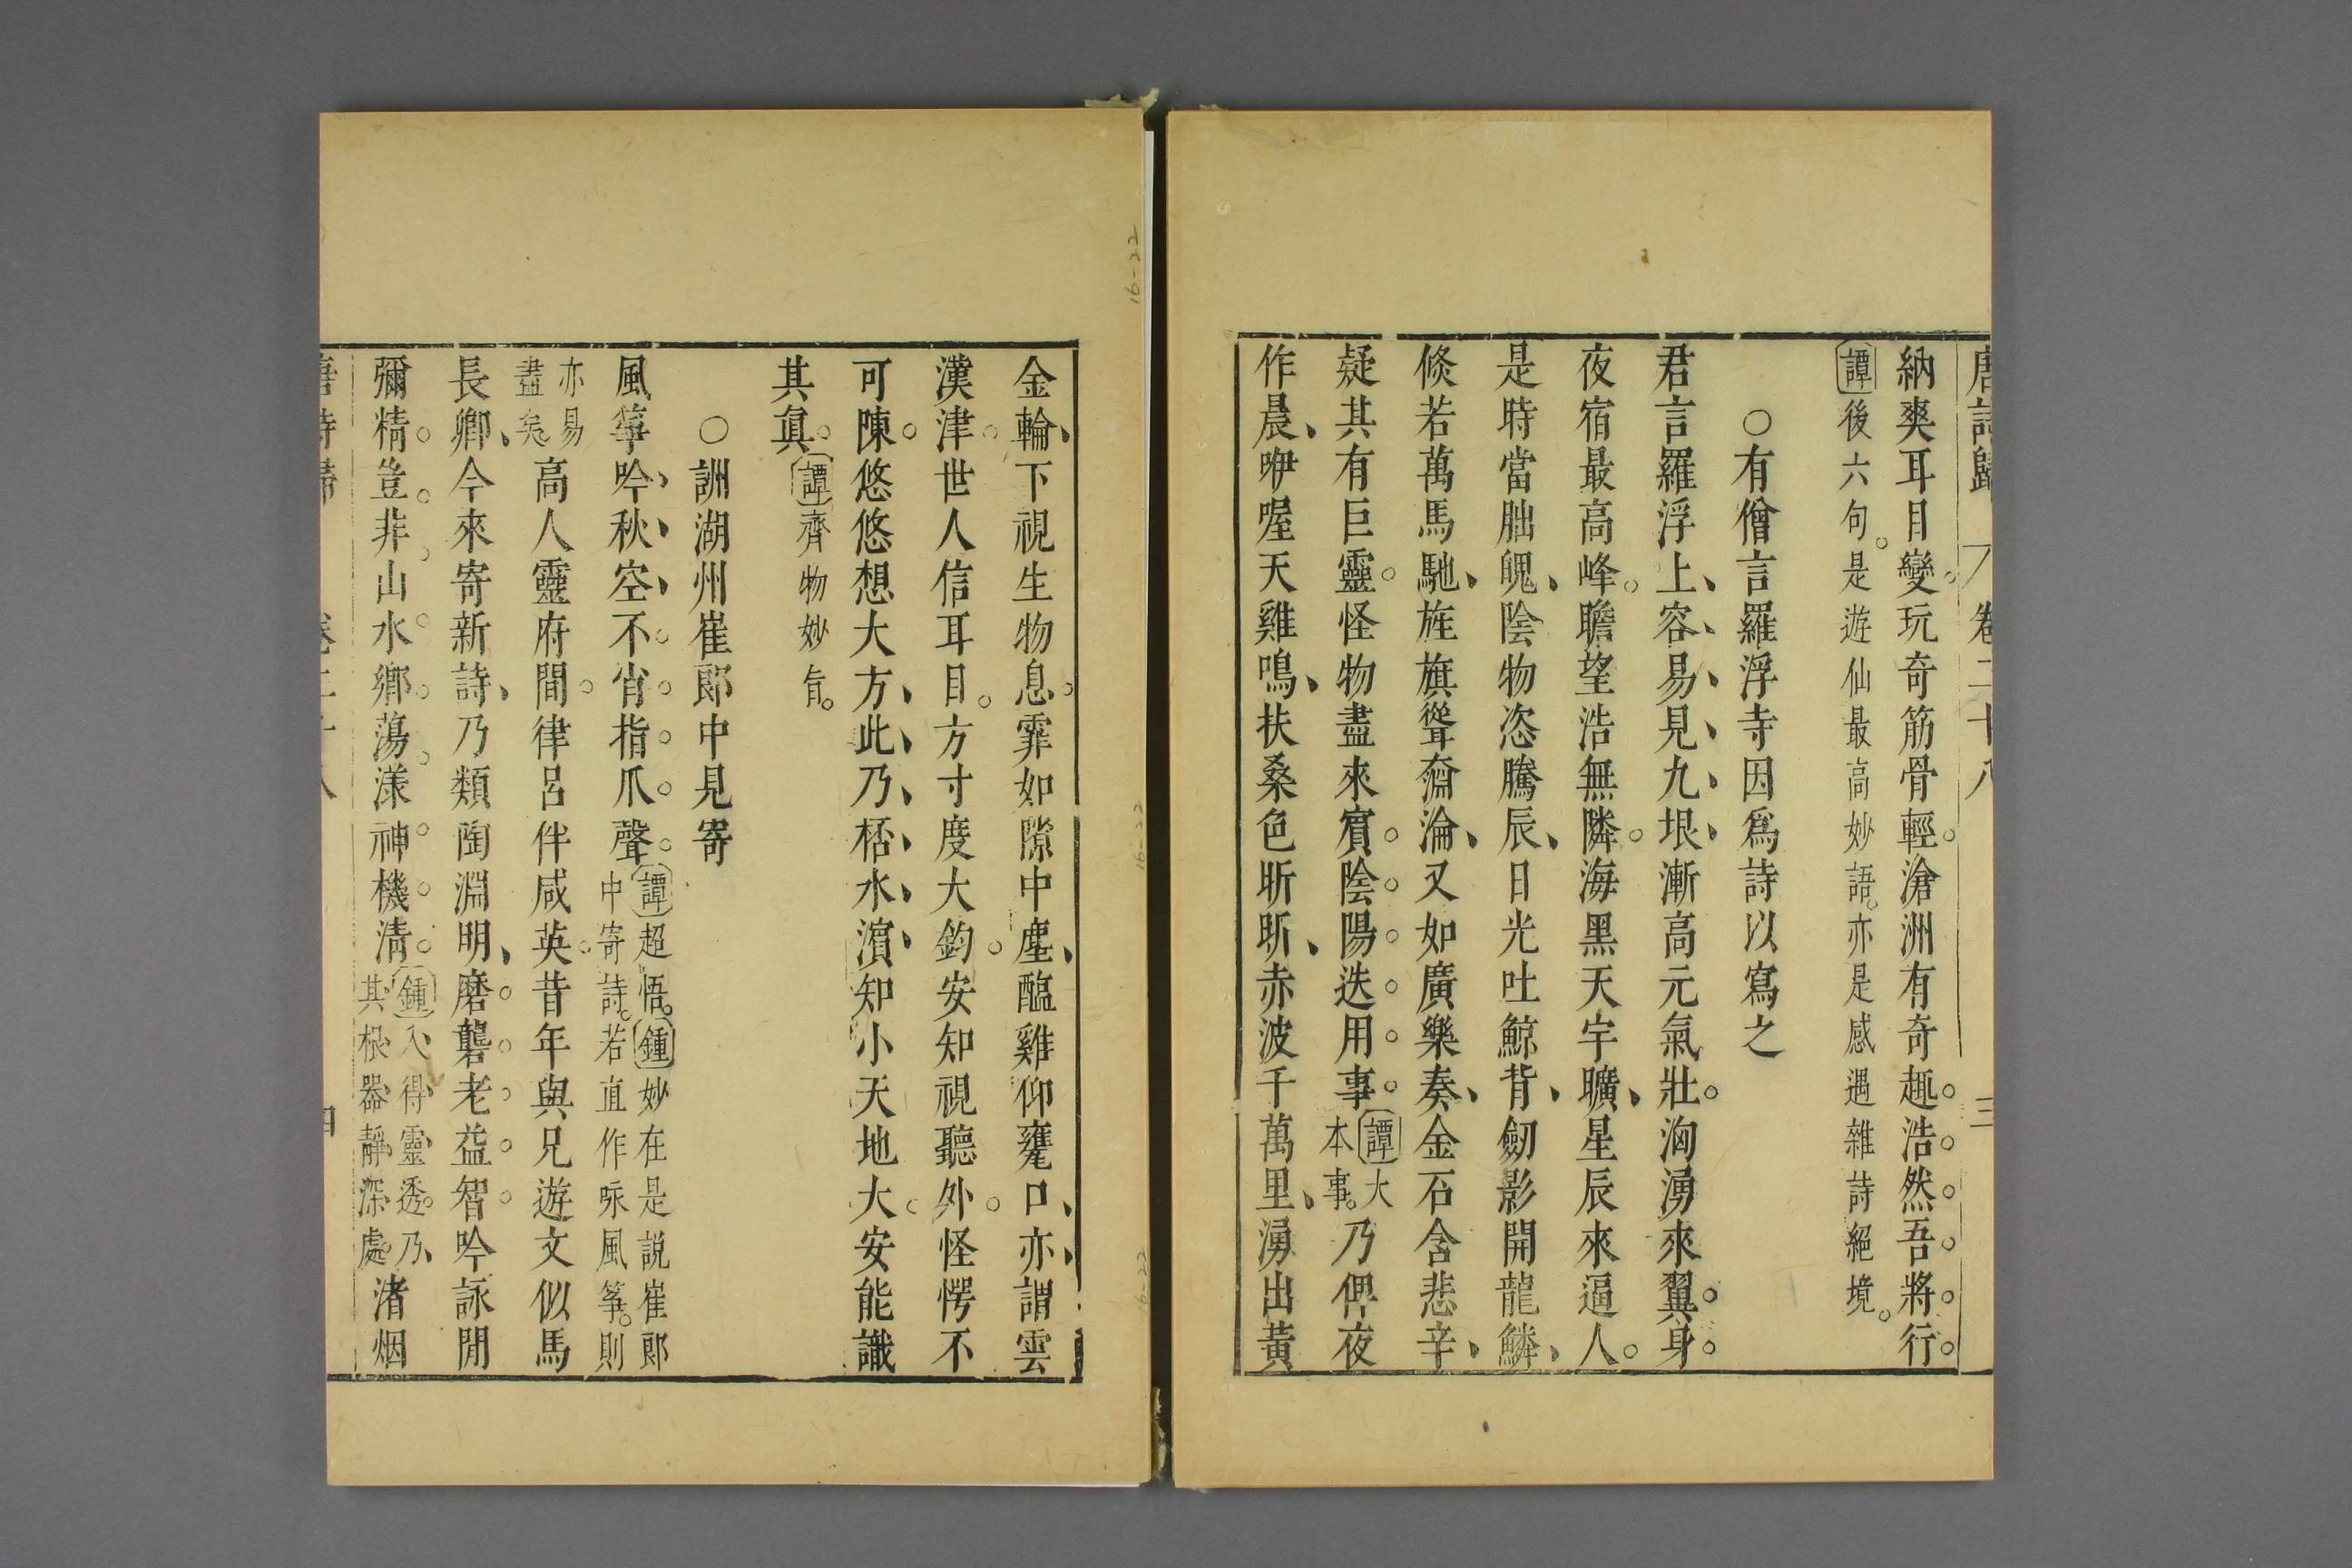 唐詩歸 卷二十八 三
納爽耳目變。玩奇筋骨輕。滄洲有奇趣。浩然吾將行。
譚後六句。是遊仙最高妙語。亦是感遇雜詩絕境。
○有僧言羅浮寺因爲詩以寫之
君言羅浮上、容易見九垠、漸高元氣壯。洶湧來翼身。
夜宿最高峰。瞻望浩無隣。海黑天宇曠、星辰來逼人。
是時當朏魄、陰物恣騰辰、日光吐鯨背、劒影開龍鱗、
倏若萬馬馳、旌旗聳奫淪、又如廣樂奏、金石含悲辛、
疑其有巨靈。怪物盡來賓。陰陽迭用事。譚大本事。乃俾夜
作晨、咿喔天雞鳴、扶桑色昕昕、赤波千萬里、湧出黃
金輪、下視生物息。霏如隙中塵、醢雞仰甕口、亦謂雲
漢津。世人信耳目。方寸度大鈞。安知視聽外。怪愕不
可陳。悠悠想大方、此乃桮水濱、知小天地大。安能識
其眞。譚齊物妙旨。
○詶湖州崔郎中見寄
風箏吟秋空、不肖指爪聲。譚超悟。鍾妙在是說崔郎中寄詩。若直作咏風箏。則
亦易盡矣高人靈府間。律呂伴咸英。昔年與兄遊文似馬
長卿、今來寄新詩、乃類陶淵明、磨礱老益智。吟詠閒
彌精。豈非山水鄉。蕩漾神機清。鍾入得靈透。乃其根器靜深處渚烟
唐詩歸 卷二十八 四
16-22